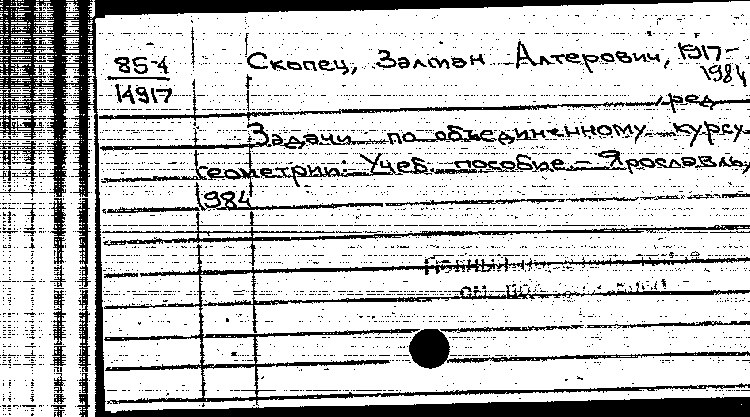 85-4
14917
Скопец, Залман Алтерович, 1917-
1984
, ред
Задачи по объединенному курсу
геометрии: Учеб. пособие.- Ярославль,
1984